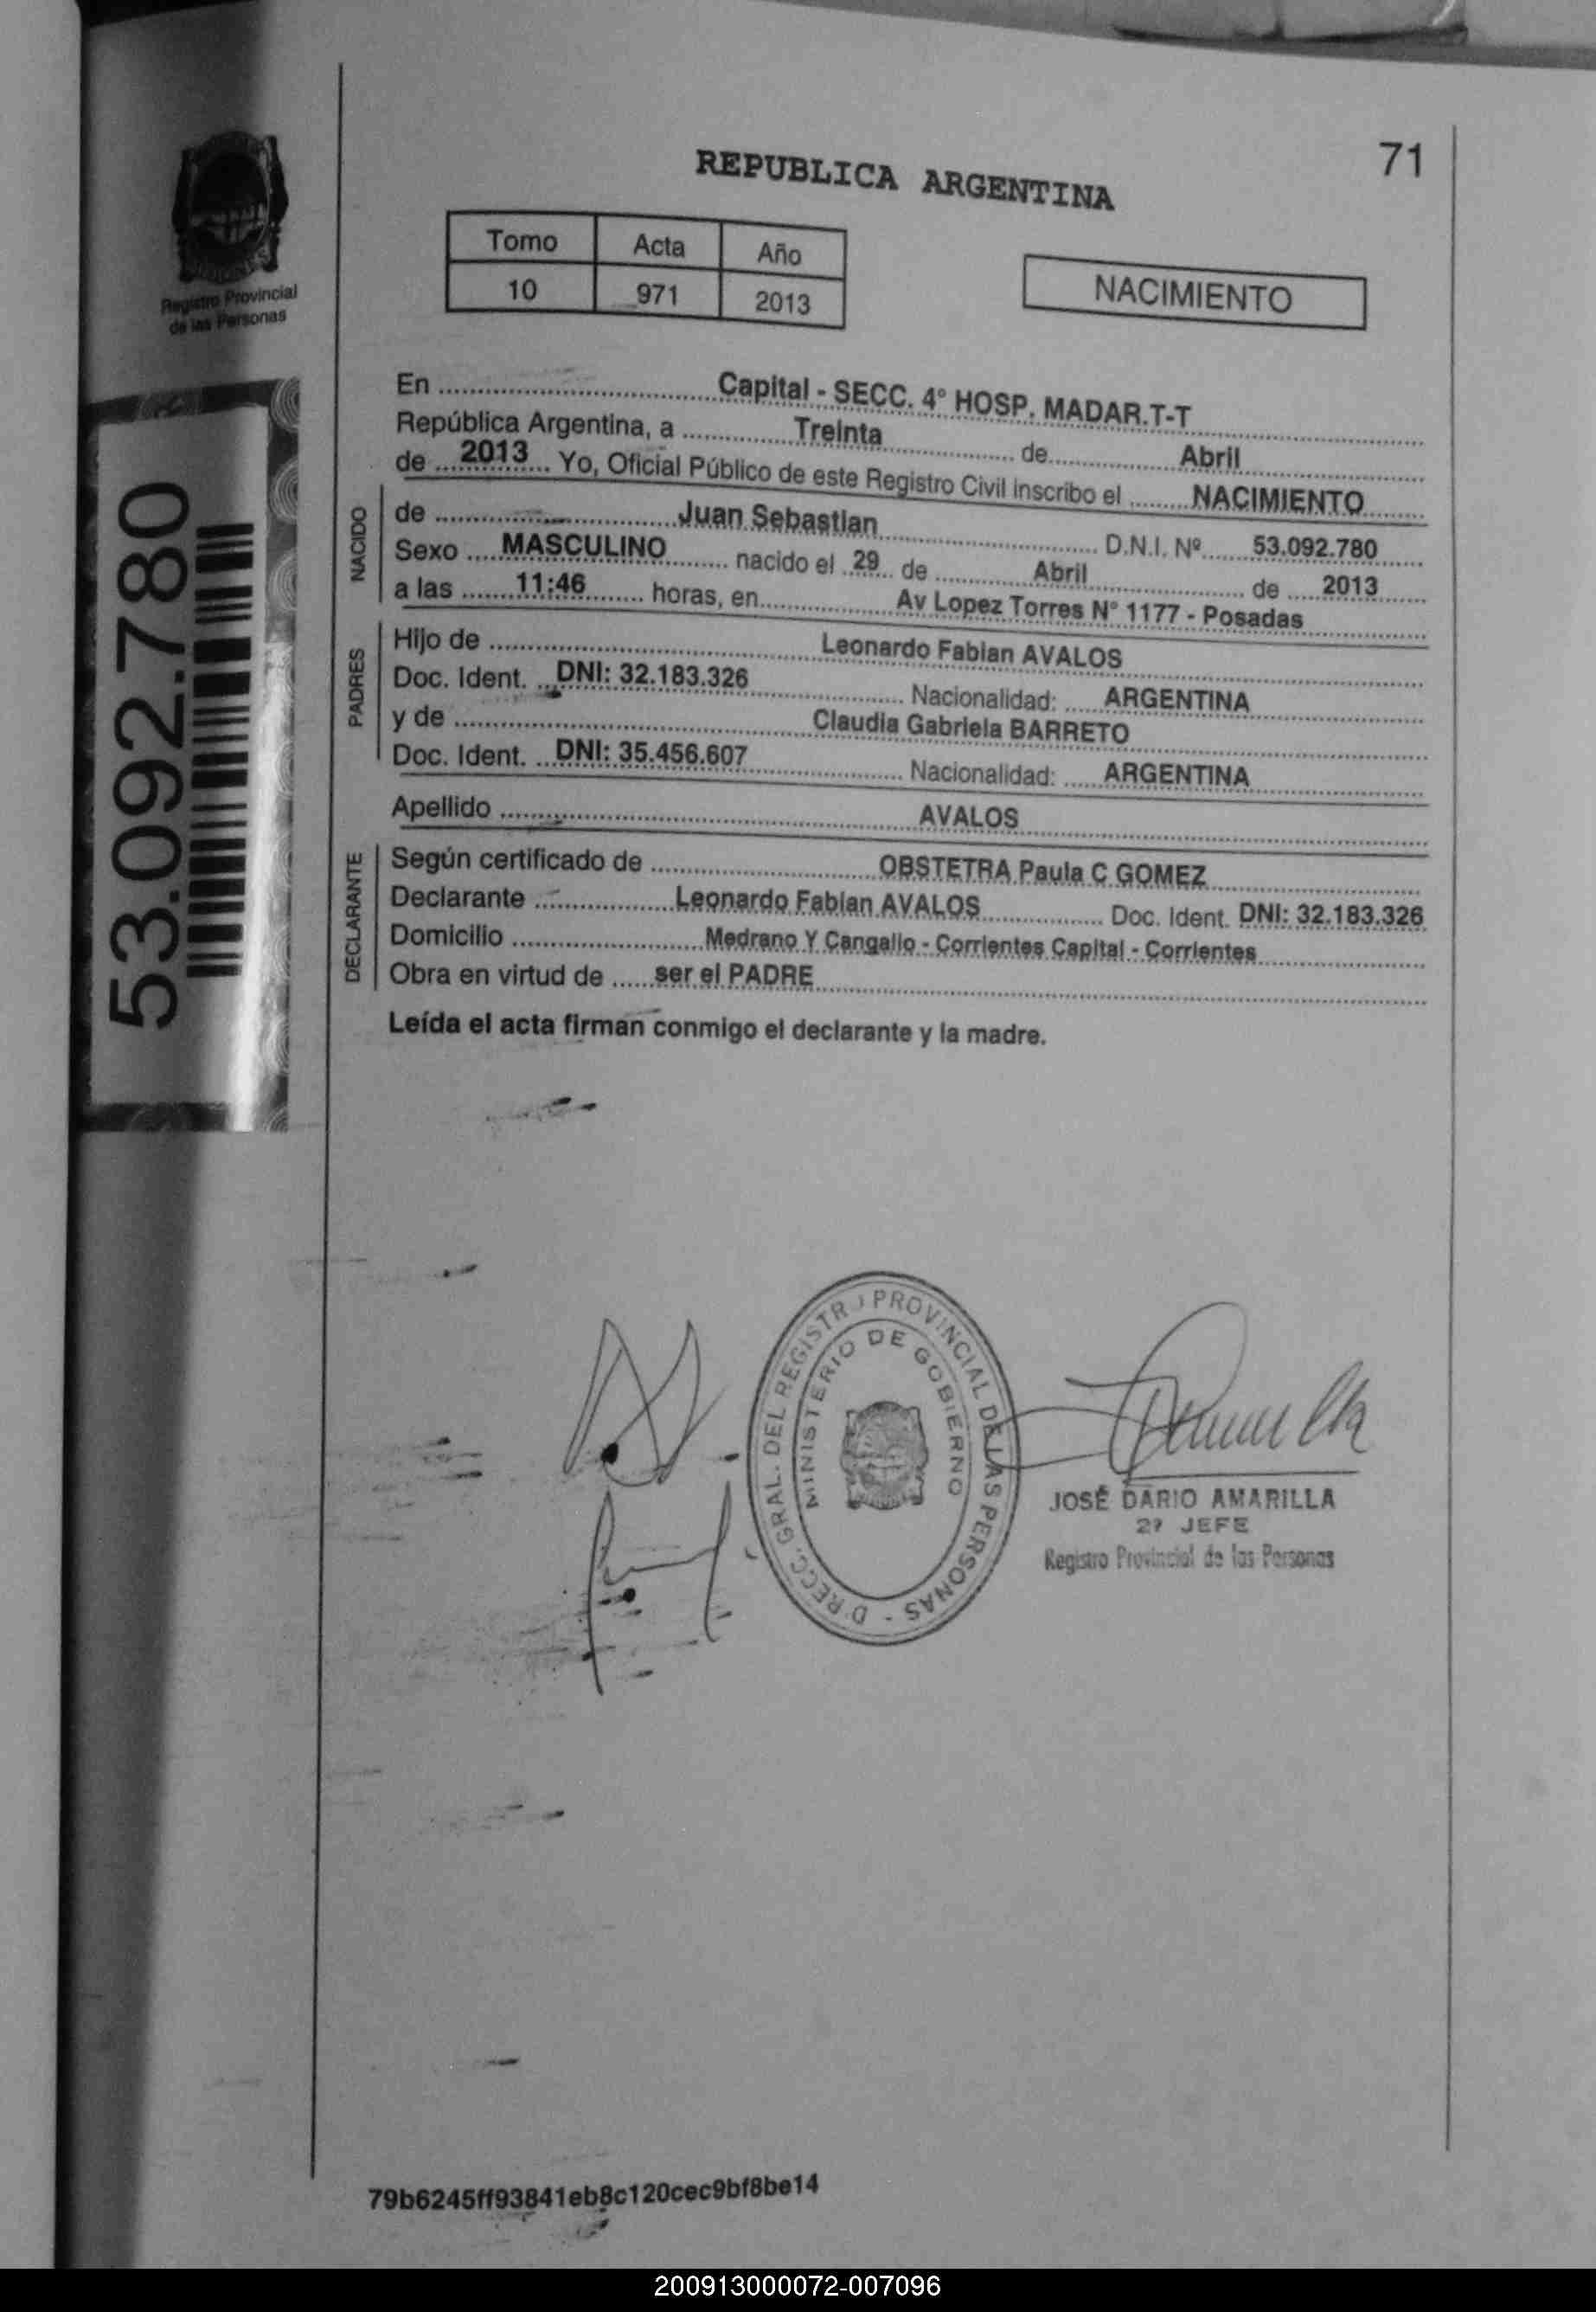 71
REPUBLICA ARGENTINA
Tomo Acta Año
10 971 2013
NACIMIENTO
Registro Provincial
de las Personas
53.092.780
En Capital - SECC. 4° HOSP. MADAR.T-T
República Argentina, a Treinta de Abril
de 2013 Yo, Oficial Público de este Registro Civil inscribo el NACIMIENTO
NACIDO
de Juan Sebastian D.N.I. Nº 53.092.780
Sexo MASCULINO nacido el 29 de Abril de 2013
a las 11:46 horas, en Av Lopez Torres N° 1177 - Posadas
PADRES
Hijo de Leonardo Fabian AVALOS
Doc. Ident. DNI: 32.183.326 Nacionalidad: ARGENTINA
y de Claudia Gabriela BARRETO
Doc. Ident. DNI: 35.456.607 Nacionalidad: ARGENTINA
Apellido AVALOS
DECLARANTE
Según certificado de OBSTETRA Paula C GOMEZ
Declarante Leonardo Fabian AVALOS Doc. Ident. DNI: 32.183.326
Domicilio Medrano Y Cangallo - Corrientes Capital - Corrientes
Obra en virtud de ser el PADRE
Leída el acta firman conmigo el declarante y la madre.
DIRECC. GRAL. DEL REGISTRO PROVINCIAL DE LAS PERSONAS -
MINISTERIO DE GOBIERNO
JOSÉ DARIO AMARILLA
2º JEFE
Registro Provincial de las Personas
79b6245ff93841eb8c120cec9bf8be14
200913000072-007096